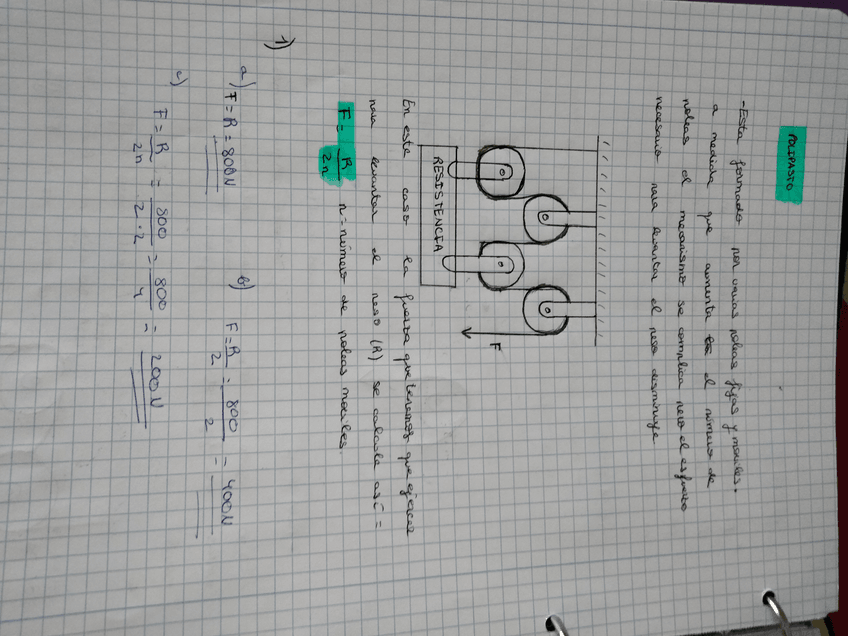 POLIPASTO
-Esta formado por varias poleas fijas y moviles.
a medida que aumenta el número de
poleas el mecanismo se complica pero el esfuerzo
necesario para levantar el peso disminuye
F
RESISTENCIA
En este caso la fuerza que tenemos que ejercer
para levantar el peso (R) se calcula así =
F = R/2n n = número de poleas moviles.
1)
a) F = R = 800N b) F = R/2 = 800/2 = 400N
c) F = R/2n = 800/2·2 = 800/4 = 200N